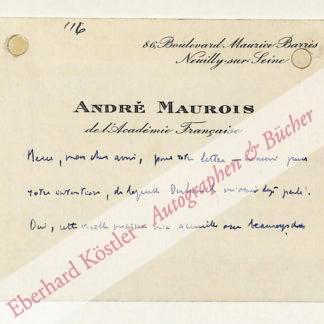 116
86, Boulevard Maurice Barrès
Neuilly-sur-Seine
ANDRÉ MAUROIS
de l'Académie Française
Merci, mon cher ami, pour votre lettre — Merci pour
votre intention, de laquelle m'avait déjà parlé.
Oui, cette vieille m'a avec beaucoup de
Eberhard Köstler Autographen & Bücher